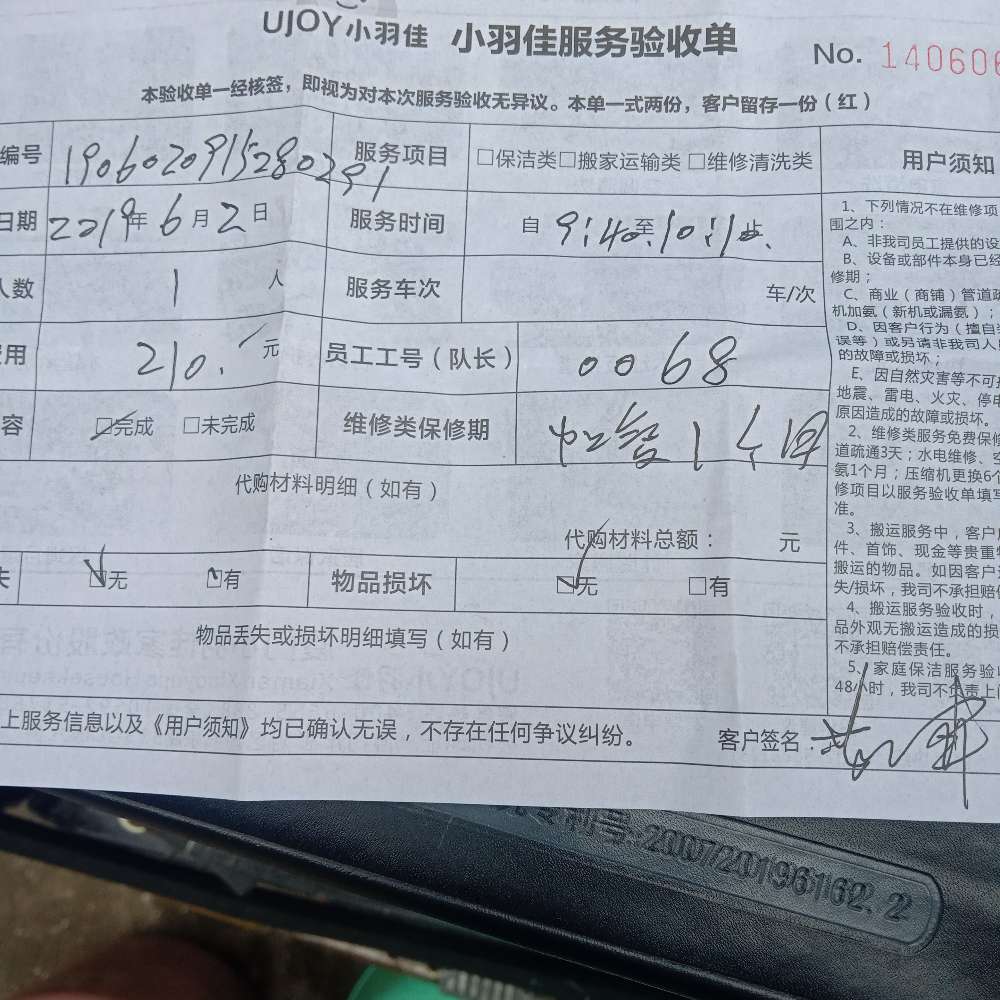 UJOY小羽佳 小羽佳服务验收单 No. 140606
本验收单一经核签，即视为对本次服务验收无异议。本单一式两份，客户留存一份（红）
编号 1906020915280291 服务项目 □保洁类□搬家运输类 □维修清洗类
日期 2219年6月2日 服务时间 自 9:40至10:11止
人数 1 人 服务车次 车/次
费用 210. 元 员工工号（队长） 0068
容 ☑完成 □未完成 维修类保修期 1个月
代购材料明细（如有）
代购材料总额： 元
失 ☑无 □有 物品损坏 ☑无 □有
物品丢失或损坏明细填写（如有）
上服务信息以及《用户须知》均已确认无误，不存在任何争议纠纷。 客户签名：
用户须知
1、下列情况不在维修项
围之内：
A、非我司员工提供的设
B、设备或部件本身已经
修期；
C、商业（商铺）管道疏
机加氨（新机或漏氨）；
D、因客户行为（擅自
误等）或另请非我司人
的故障或损坏；
E、因自然灾害等不可抗
地震、雷电、火灾、停电
原因造成的故障或损坏。
2、维修类服务免费保修
道疏通3天；水电维修、空
氨1个月；压缩机更换6个
修项目以服务验收单填写
准。
3、搬运服务中，客户
件、首饰、现金等贵重
搬运的物品。如因客户
失/损坏，我司不承担赔偿
4、搬运服务验收时，
品外观无搬运造成的损
不承担赔偿责任。
5、家庭保洁服务验收
48小时，我司不负责上
专利号:200720196162.2